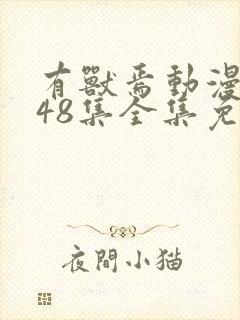 有獸焉動漫
48集全集免
夜間小猫